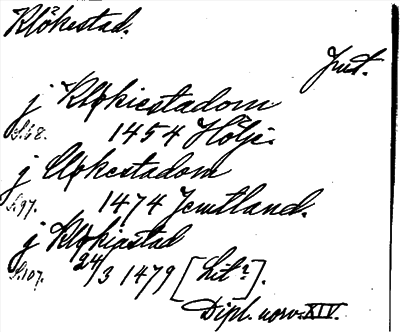 Klökestad.
Jmt.
j Kløkiestadom
S. 68. 1454 Hölje.
j Clokestadom
S. 97. 1474 Jemtland.
j Kløkiastad
S. 107. 24/3 1479 [Lit?].
Dipl. norv. XIV.